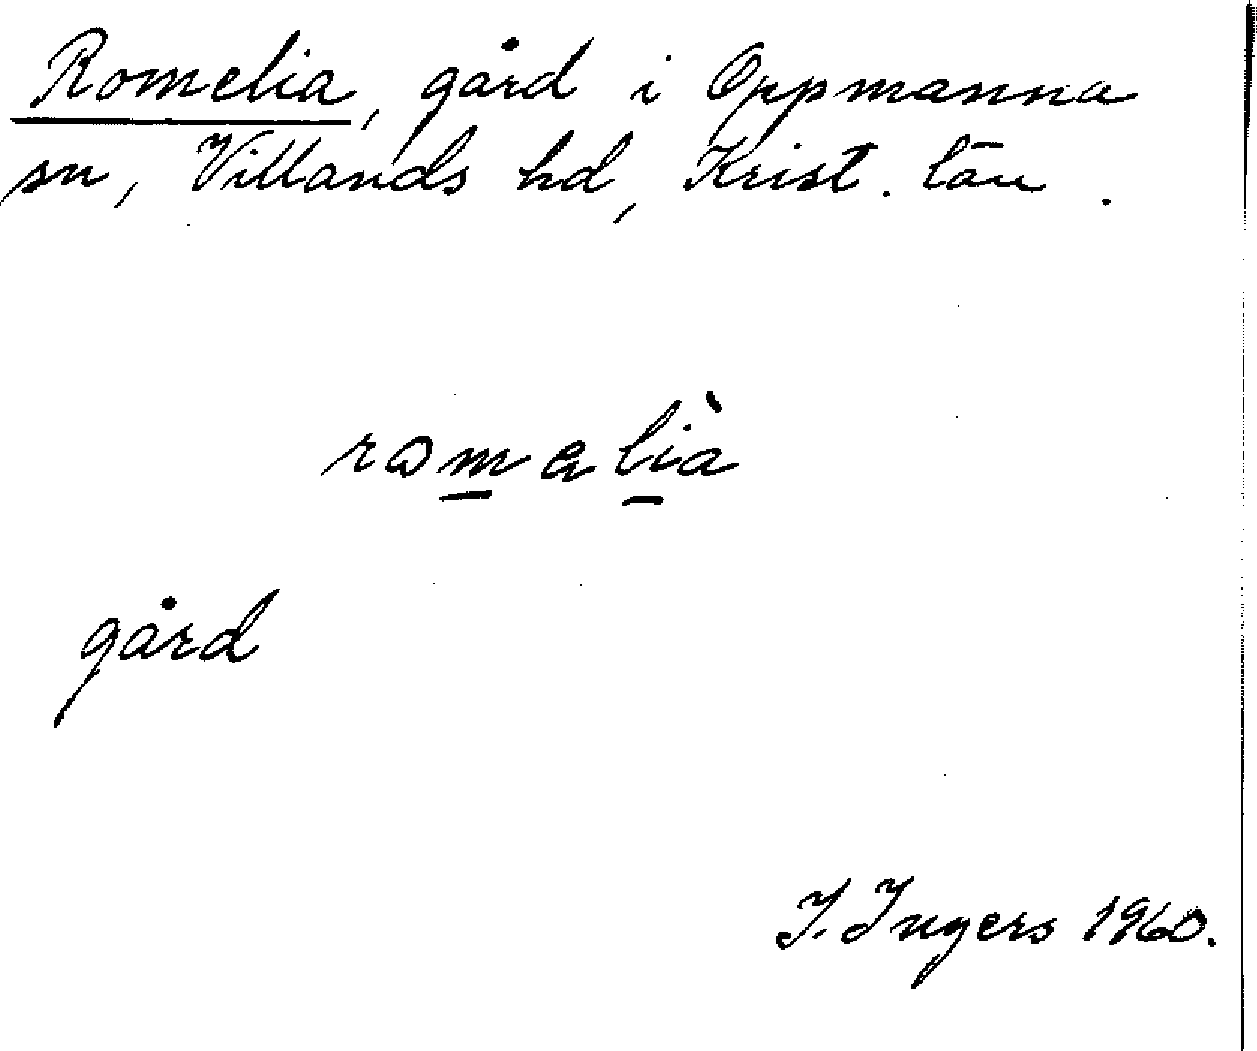 Romelia, gård i Oppmanna
sn, Villands hd, Krist. län.
romelià
gård
I. Ingers 1960.